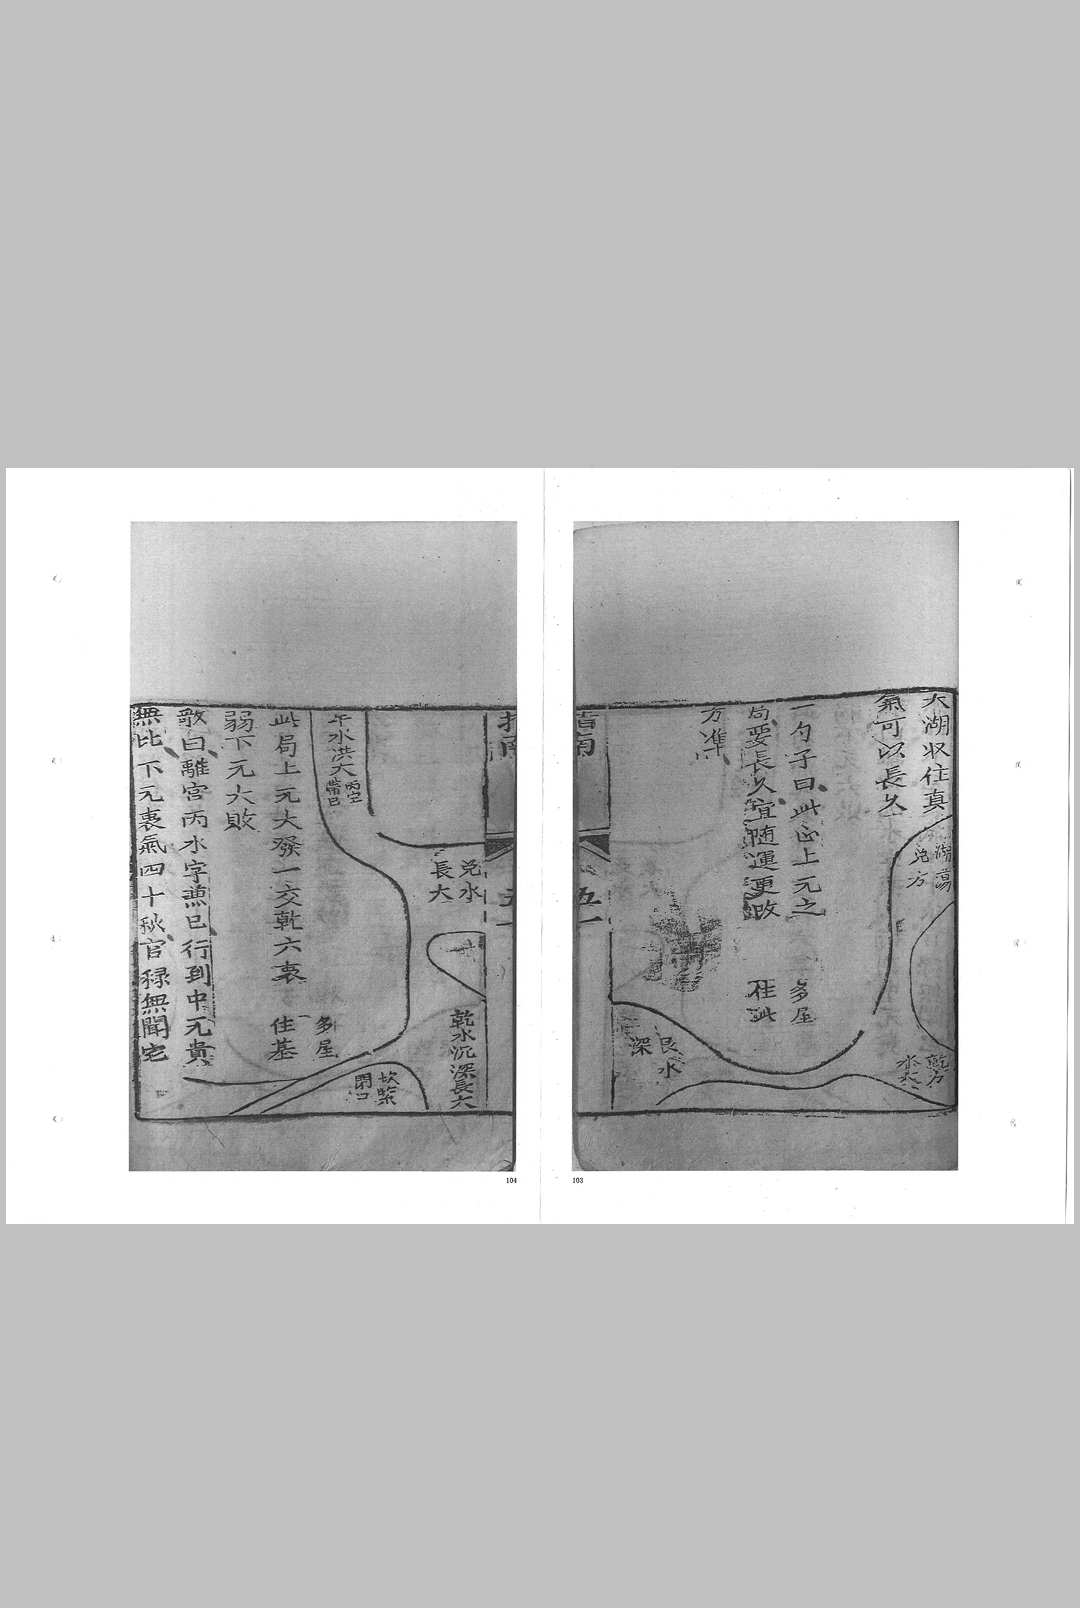 大湖収住真
氣可以長久
湖蕩
兌方
乾方
水大
一勺子曰此局上元之
局要長久宜随運更改
方準
多屋
住此
艮水
深
指南
五一
103
指南
五一
兌水
長大
乾水沉深長大
午水洪大
丙定
兼巳
坎紫
閉口
多屋
住基
此局上元大發一交乾六衰
弱下元大敗
歌曰離宮丙水字兼巳行到中元貴
無比下元衰氣四十秋官禄無聞宅
104